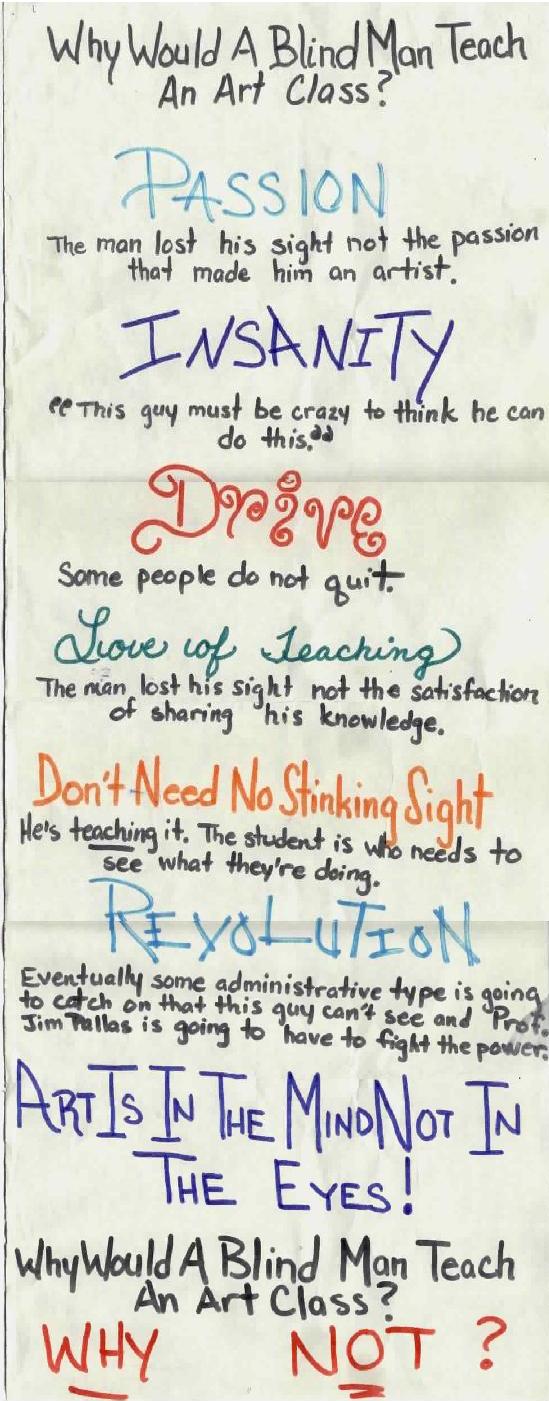 Why Would A Blind Man Teach
An Art Class?
PASSION
The man lost his sight not the passion
that made him an artist.
INSANITY
"This guy must be crazy to think he can
do this."
Drive
Some people do not quit.
Love of Teaching
The man lost his sight not the satisfaction
of sharing his knowledge.
Don't Need No Stinking Sight
He's teaching it. The student is who needs to
see what they're doing.
REVOLUTION
Eventually some administrative type is going
to catch on that this guy can't see and Prof.
Jim Pallas is going to have to fight the power.
ART IS IN THE MIND NOT IN
THE EYES!
Why Would A Blind Man Teach
An Art Class?
WHY NOT ?